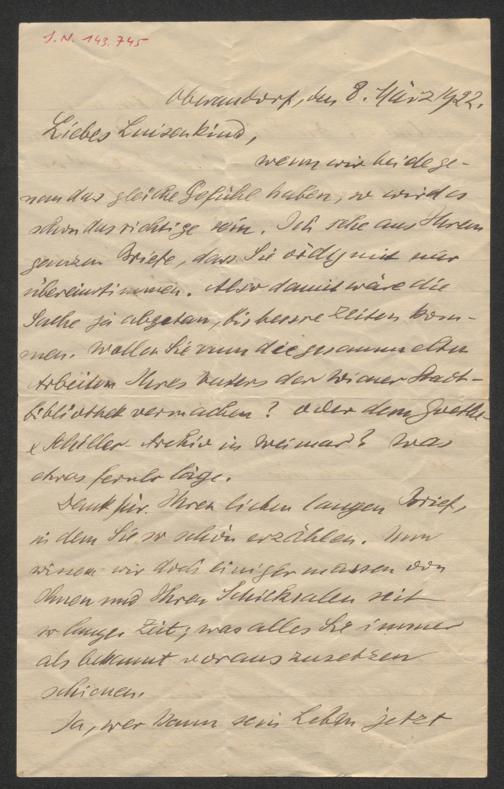 J.N. 143.745
Oberndorf, den 8. März 1922.
Liebes Luisenkind,
wenn wir beide ge-
nau das gleiche Gefühl haben, so wird es
schon das richtige sein. Ich sehe aus Ihrem
ganzen Briefe, dass Sie völlig mit mir
übereinstimmen. Also damit wäre die
Sache ja abgetan, bis bessre Zeiten kom-
men. Wollen Sie nun die gesammelten
Arbeiten Ihres Vaters der Wiener Stadt-
bibliothek vermachen? Oder dem Goethe-
& Schiller Archiv in Weimar? Was
etwas ferner läge.
Dank für Ihren lieben langen Brief,
in dem Sie so schön erzählen. Nun
wissen wir doch einigermassen von
Ihnen und Ihren Schicksalen seit
so langer Zeit; was alles Sie immer
als bekannt vorauszusetzen
schienen.
Ja, wer kann sein Leben jetzt